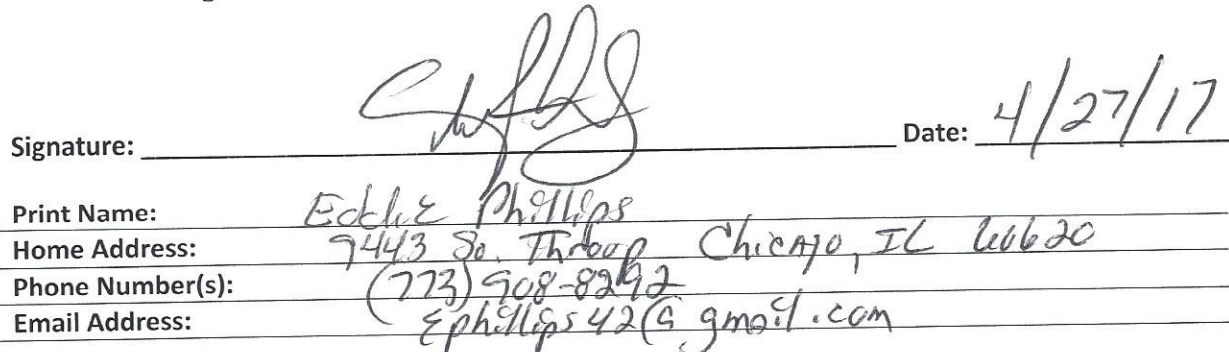 Signature: Date: 4/27/17
Print Name: Eddie Phillips
Home Address: 9443 So. Throop Chicago, IL 60620
Phone Number(s): (773) 908-8292
Email Address: Ephillips42@gmail.com